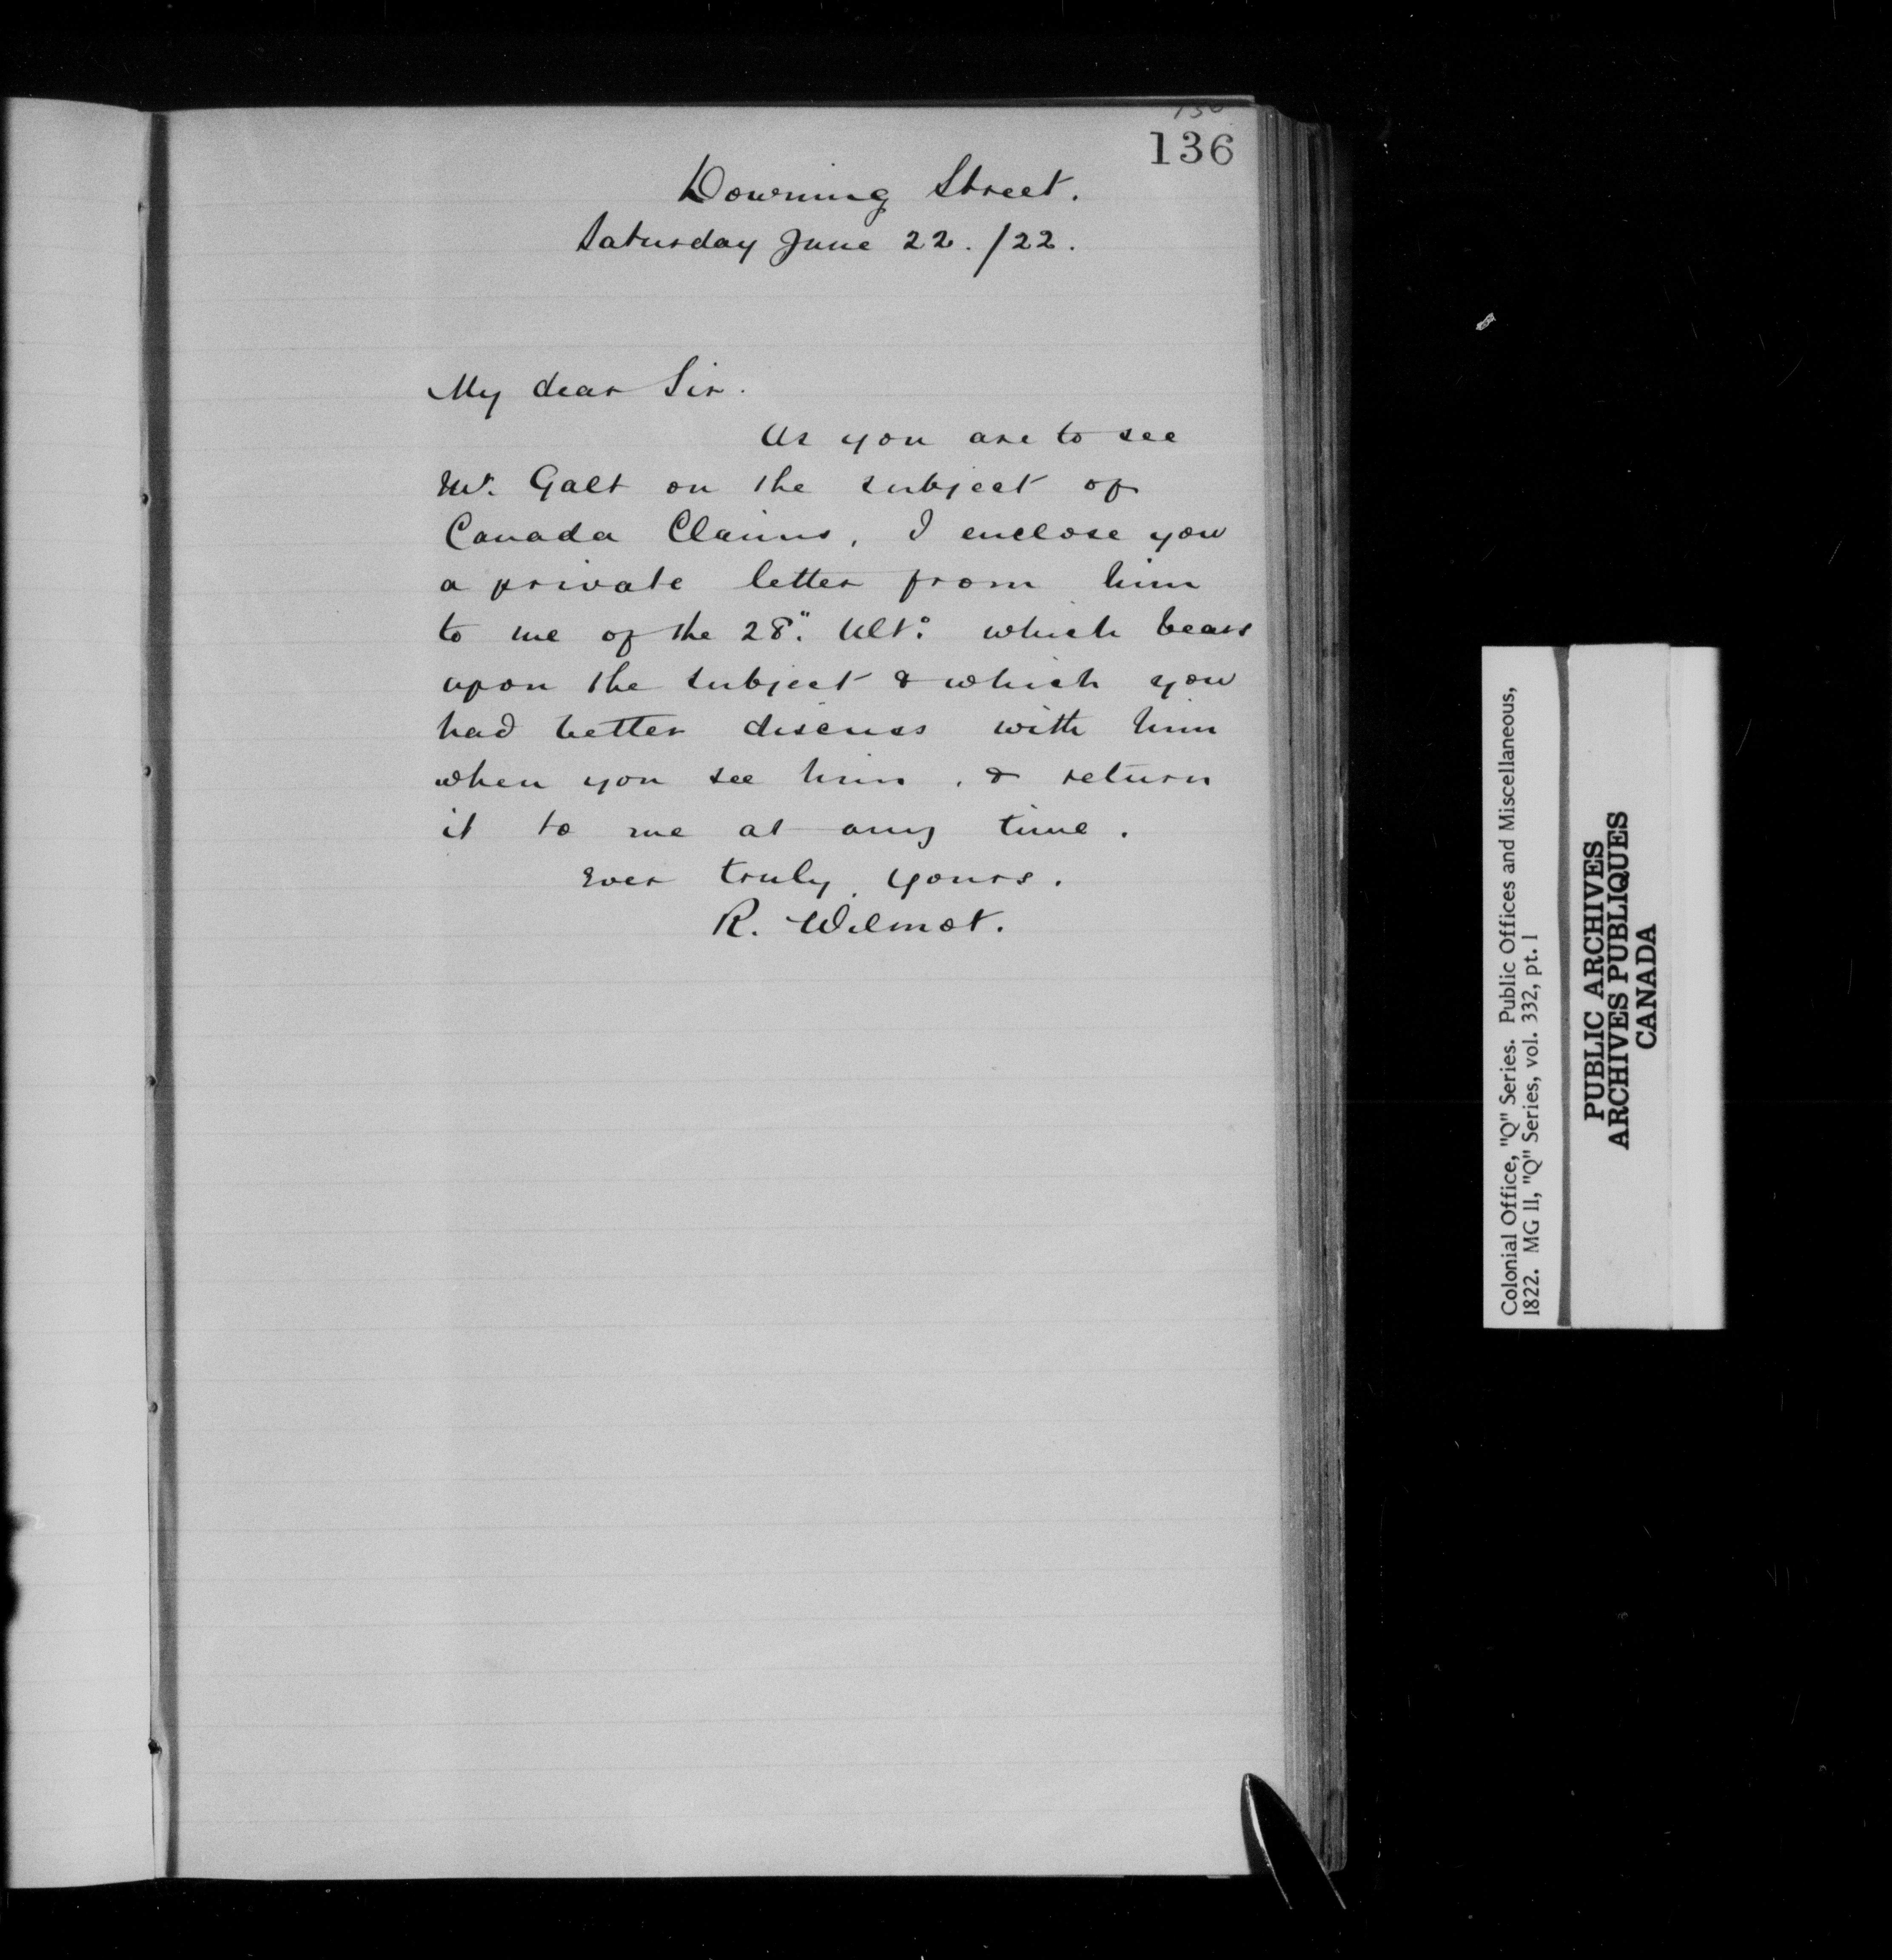 136
Downing Street.
Saturday June 22./22.
My dear Sir.
As you are to see
Mr. Galt on the subject of
Canada Claims, I enclose you
a private letter from him
to me of the 28". Ulto. which bears
upon the subject & which you
had better discuss with him
when you see him, & return
it to me at any time.
Ever truly yours.
R. Wilmot.
Colonial Office, "Q" Series. Public Offices and Miscellaneous,
1822. MG 11, "Q" Series, vol. 332, pt. 1
PUBLIC ARCHIVES
ARCHIVES PUBLIQUES
CANADA